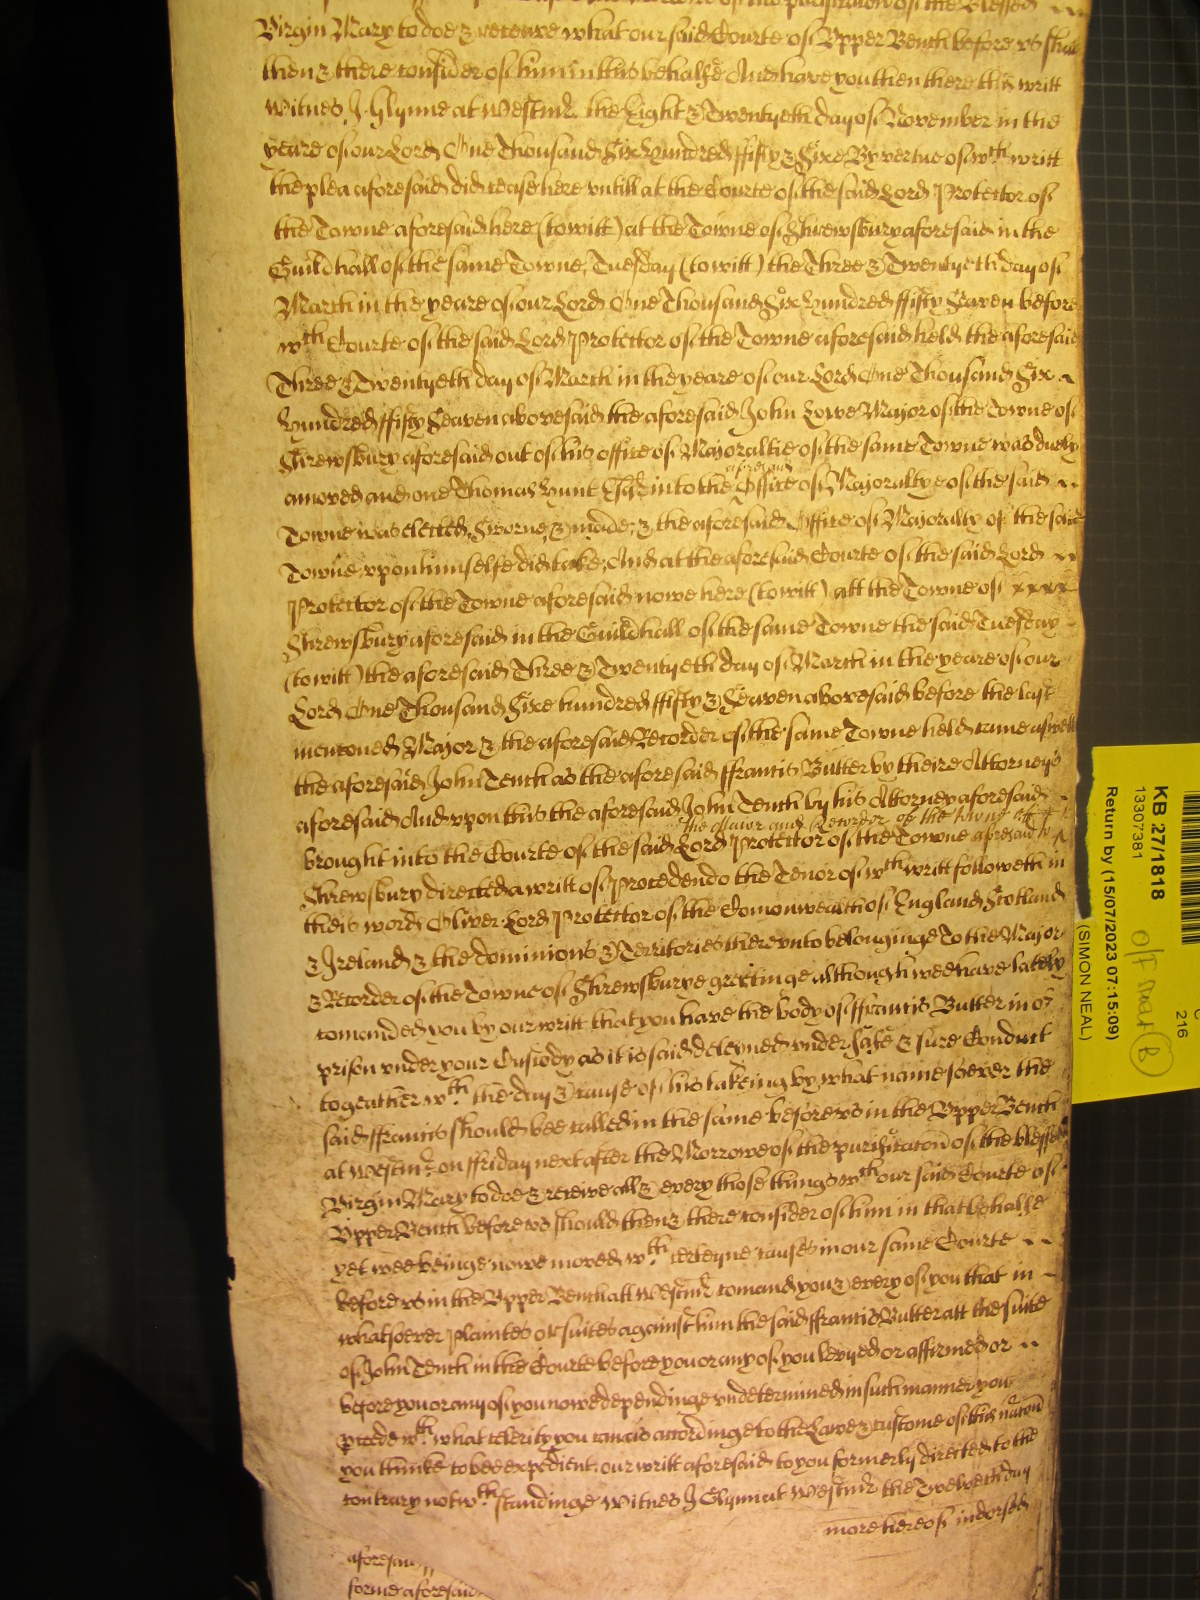 of the purificacon of the Blessed
Virgin Mary to doe & receive what our said Courte of Upper Bench before vs shall
then & there consider of him in this behalfe And have you then there this writt
Witnes J. Glynne at Westmr. the Eight & Twentyeth day of November in the
yeare of our Lord One Thousand Six hundred ffifty & Sixe By vertue of wch. writt
the plea aforesaid did cease here vntill at the Courte of the said Lord Protector of
the Towne aforesaid here (to witt) at the Towne of Shrewsbury aforesaid in the
Guildhall of the same Towne, Tuesday (to witt) the Three & Twentyeth day of
March in the yeare of our Lord One Thousand Six hundred ffifty Seaven before
wch Courte of the said Lord Protector of the Towne aforesaid held the aforesaid
Three & Twentyeth day of March in the yeare of our Lord One Thousand Six
hundred ffifty Seaven abovesaid the aforesaid John Lowe Major of the Towne of
Shrewsbury aforesaid out of his office of Majoraltie of the same Towne was duely
amoved and one Thomas Hunt Esqr into the aforesaid Office of Majoralty of the said
Towne was elected, Sworne, & made, & the aforesaid Office of Majoralty of the said
Towne vpon himselfe did take, And at the aforesaid Courte of the said Lord
Protector of the Towne aforesaid nowe here (to witt) att the Towne of
Shrewsbury aforesaid in the Guildhall of the same Towne the said Tuesday
(to witt) the aforesaid Three & Twentyeth day of March in the yeare of our
Lord One Thousand Sixe hundred ffifty & Seaven abovesaid before the last
mencioned Major & the aforesaid Recorder of the same Towne held came aswell
the aforesaid John Tench as the aforesaid ffrancis Butter by theire Attorneys
aforesaid And vpon this the aforesaid John Tench by his Attorney aforesaid
the Maior and Recorder of the towne of
brought into the Courte of the said Lord Protector of the Towne aforesaid to
Shrewsbury directed a writt of Procedendo the Tenor of wch writt followeth in
theis words Oliver Lord Protector of the Comonwealth of England Scotland
& Ireland & the dominions & Territories therevnto belonginge To the Major
& Recorder of the Towne of Shrewsburye greetinge although wee have lately
comanded you by our writt that you have the body of ffrancis Butter in or
prison vnder your Custody as it is said deteyned vnder safe & sure Conduct
togeather wth. the day & cause of his takeing by what name soever the
said ffrancis should bee called in the same before vs in the Vpper Bench
at Westmr. on ffriday next after the Morrowe of the purificacon of the blessed
Virgin Mary to doe & receive all & every those things wch our said Courte of
Vpper Bench before vs should then & there consider of him in that behalfe
yet wee beinge nowe moved wth. certeyne causes in our same Courte
before vs in the Vpper Bench att Westmr comand you & every of you that in
whatsoever plaintes or suites against him the said ffrancis Butter att the suite
of John Tench in the Courte before you or any of you levyed or affirmed or
before you or any of you nowe dependinge vndetermined in such manner you
pceede wth. what celerity you can as accordinge to the Lawe & custome of this nacon
you thinke to bee expedient, our writt aforesaid to you formerly directed to the
contrary notwth.standinge Witnes J Glynn at Westmr the Twelveth day
more hereof indorsed
aforesaid
forme aforesaid
KB 27/1818
13307381
Return by (15/07/2023 07:15:09)
(SIMON NEAL)
216
B